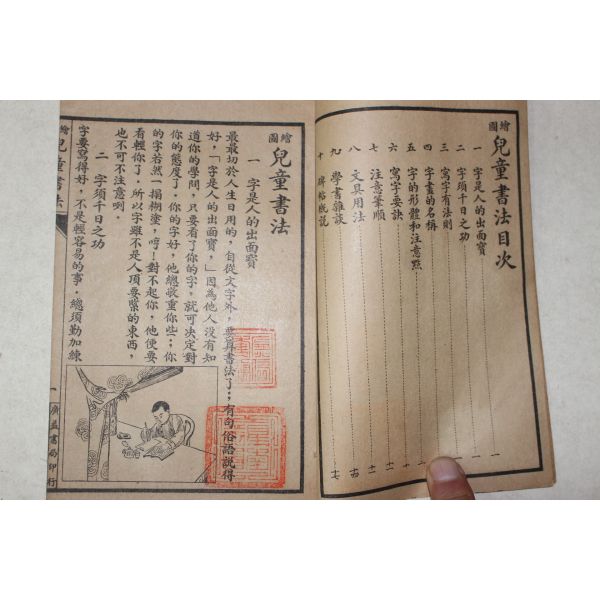 繪圖 兒童書法目次
一 字是人的出面寶 一
二 字須千日之功 一
三 寫字有法則
四 字畫的名稱
五 字的形體和注意點
六 寫字要訣
七 注意筆順
八 文具用法
九 學書雜談
十 碑帖概說
繪圖 兒童書法
一 字是人的出面寶
最最切於人生日用的，自從文字外，要算書法了；有句俗語說得
好，「字是人的出面寶，」因為他人沒有知
道你的學問，只要看了你的字，就可決定對
你的態度了．你的字好，他總敬重你些；你
的字若然一搨糊塗，唷！對不起你，他便要
看輕你了．所以字雖不是人頂要緊的東西，
也不可不注意咧．
二 字須千日之功
字要寫得好，不是輕容易的事．總須勤加練
繪圖 兒童書法
一 廣益書局印行